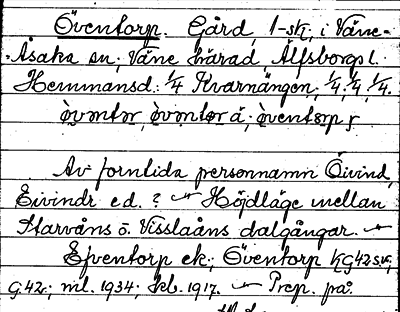 Öventorp. Gård, 1 skt, i Väne-
Åsaka sn, Väne härad, Älfsborgs l.
Hemmansd.: 1/4 Kvarnängen; 1/4, 1/4, 1/4.
Av forntida personnamn Öivind,
Eivindr e d. ? Höjdläge mellan
Starvåns o. Visslaåns dalgångar.
Efventorp ek; Öventorp KG42sv,
G.42; ml. 1934; Jrb. 1917. Prep. på.